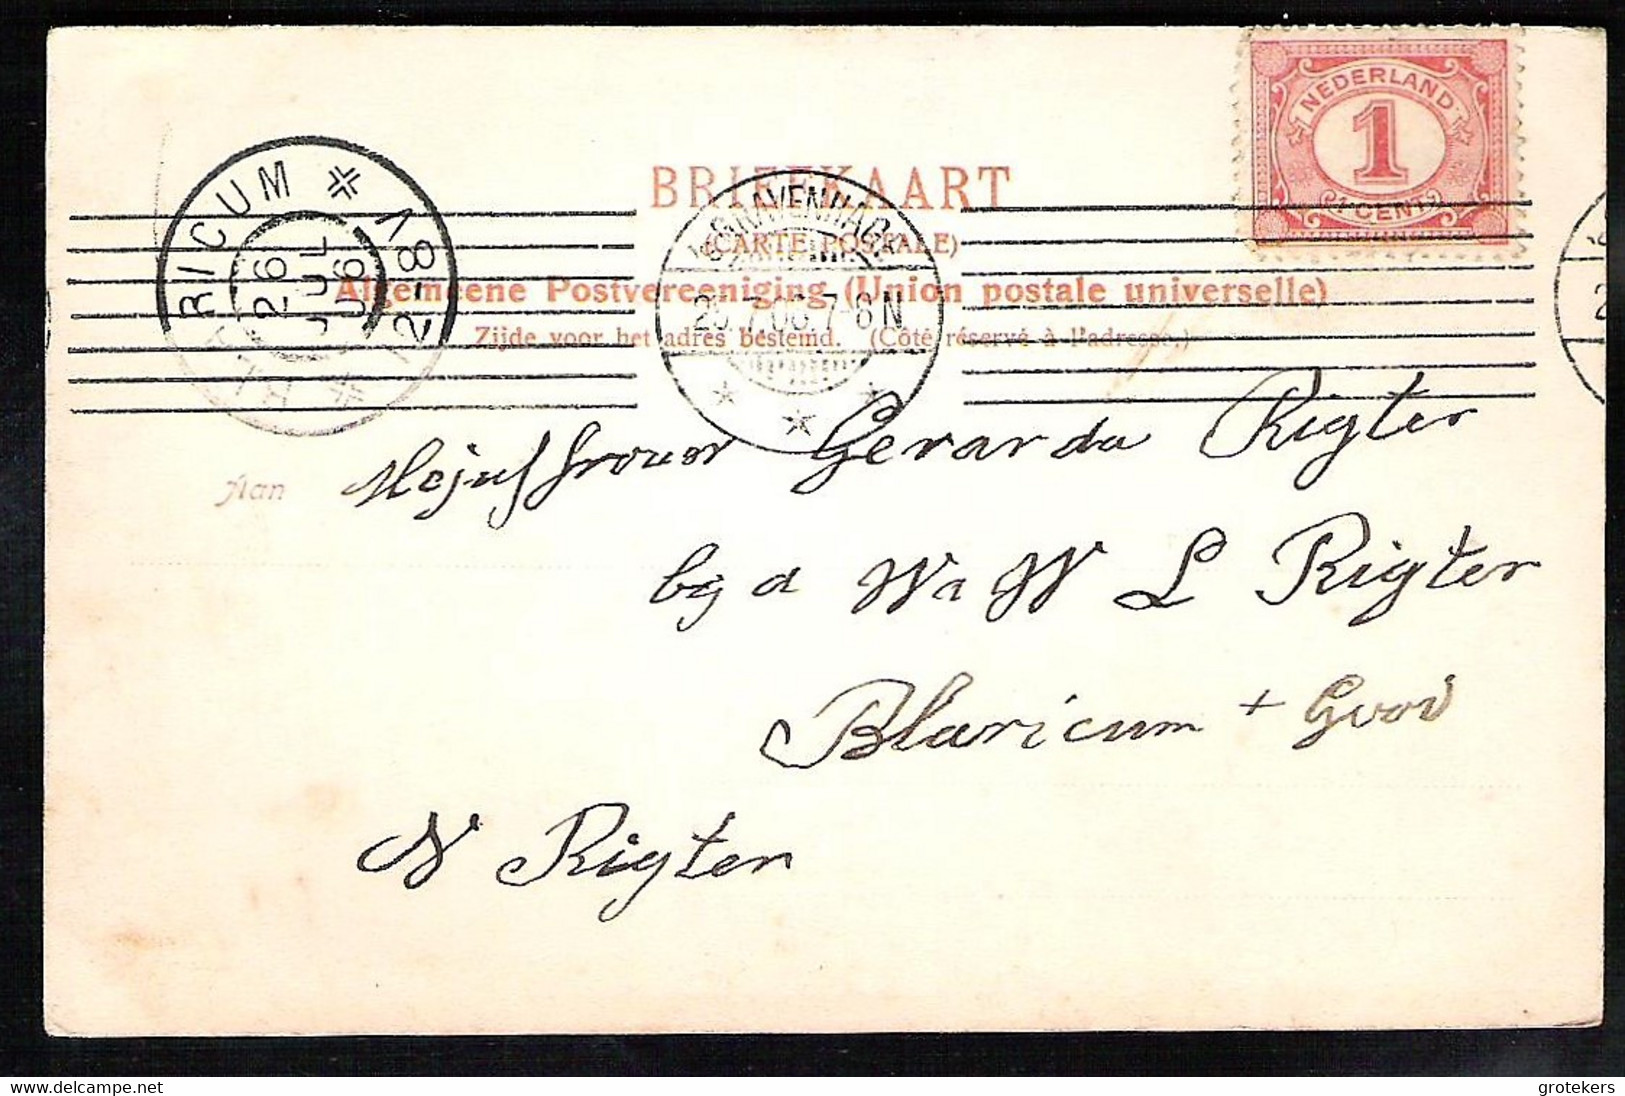 NEDERLAND
1
1 CENT
BRIEFKAART
(CARTE POSTALE)
Algemeene Postvereeniging (Union postale universelle)
Zijde voor het adres bestemd. (Côté réservé à l'adresse.)
RICUM
26 JUL 06
8-12 V
'S-GRAVENHAGE
7-8 N
Aan
Mejuffrouw Gerarda Rigter
bij d W L Rigter
Blaricum + Gooi
N Rigter
delcampe.net
grotekers